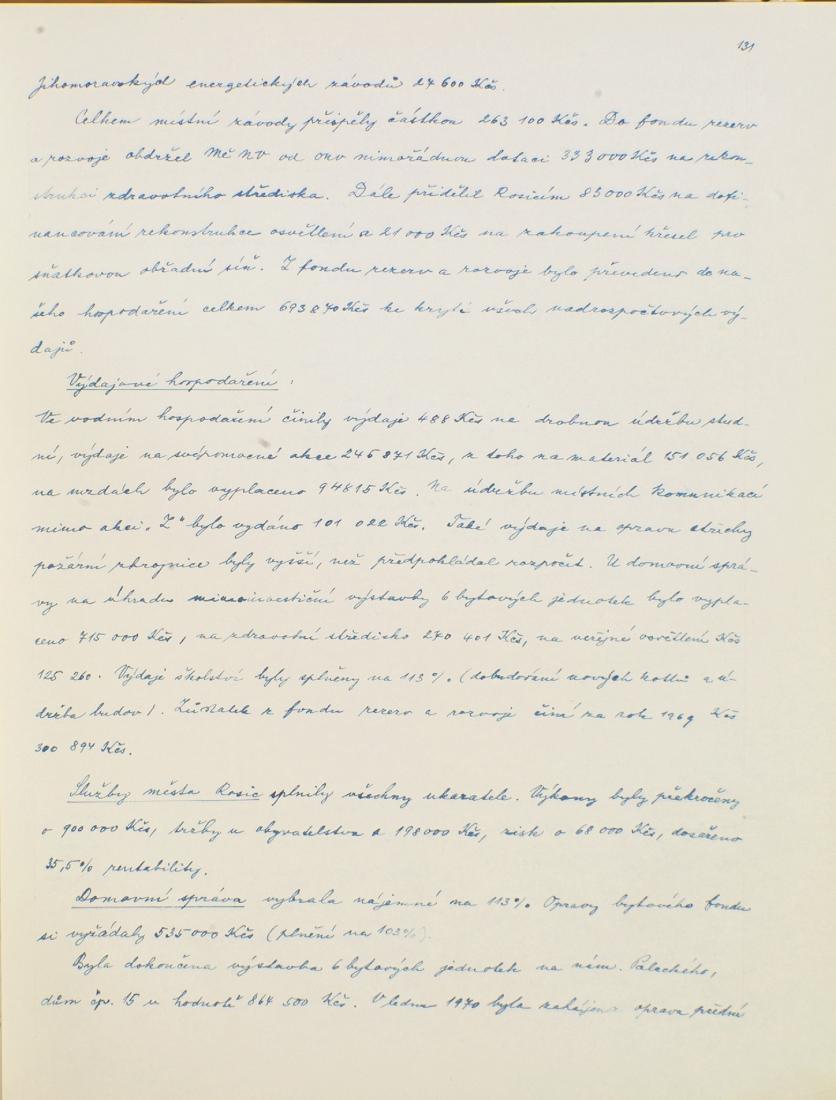 131
Jihomoravských energetických závodů 27 600 Kčs.
Celkem místní závody přispěly částkou 263 100 Kčs. Do fondu rezerv
a rozvoje obdržel Mě NV od ONV mimořádnou dotaci 333 000 Kčs na rekon-
strukci zdravotního střediska. Dále přidělil Rosicím 83 000 Kčs na dofi-
nancování rekonstrukce osvětlení a 21 000 Kčs na zakoupení křesel pro
sňatkovou obřadní síň. Z fondu rezerv a rozvoje bylo převedeno do na-
šeho hospodaření celkem 693 870 Kčs ke krytí všech nadrozpočtových vý-
dajů.
Výdajové hospodaření:
Ve vodním hospodaření činily výdaje 488 Kčs na drobnou údržbu stud-
ní, výdaje na svépomocné akce 245 871 Kčs, z toho na materiál 151 056 Kčs,
na mzdách bylo vyplaceno 94 815 Kčs. Na údržbu místních komunikací
mimo akci "Z" bylo vydáno 101 022 Kčs. Také výdaje na opravu střechy
požární zbrojnice byly vyšší, než předpokládal rozpočet. U domovní sprá-
vy na úhradu investiční výstavby 6 bytových jednotek bylo vypla-
ceno 715 000 Kčs, na zdravotní středisko 270 401 Kčs, na veřejné osvětlení Kčs
125 260. Výdaje školství byly splněny na 113 %. (dobudování nových kotlů a ú-
držba budov). Zůstatek z fondu rezerv a rozvoje činí za rok 1969 Kčs
300 894 Kčs.
Služby města Rosic splnily všechny ukazatele. Výkony byly překročeny
o 900 000 Kčs, tržby u obyvatelstva o 198 000 Kčs, zisk o 68 000 Kčs, dosaženo
35,5 % rentability.
Domovní správa vybrala nájemné na 113 %. Opravy bytového fondu
si vyžádaly 535 000 Kčs (plnění na 103 %).
Byla dokončena výstavba 6 bytových jednotek na nám. Palackého,
dům čp. 15 v hodnotě 864 500 Kčs. V lednu 1970 byla zahájena oprava přední